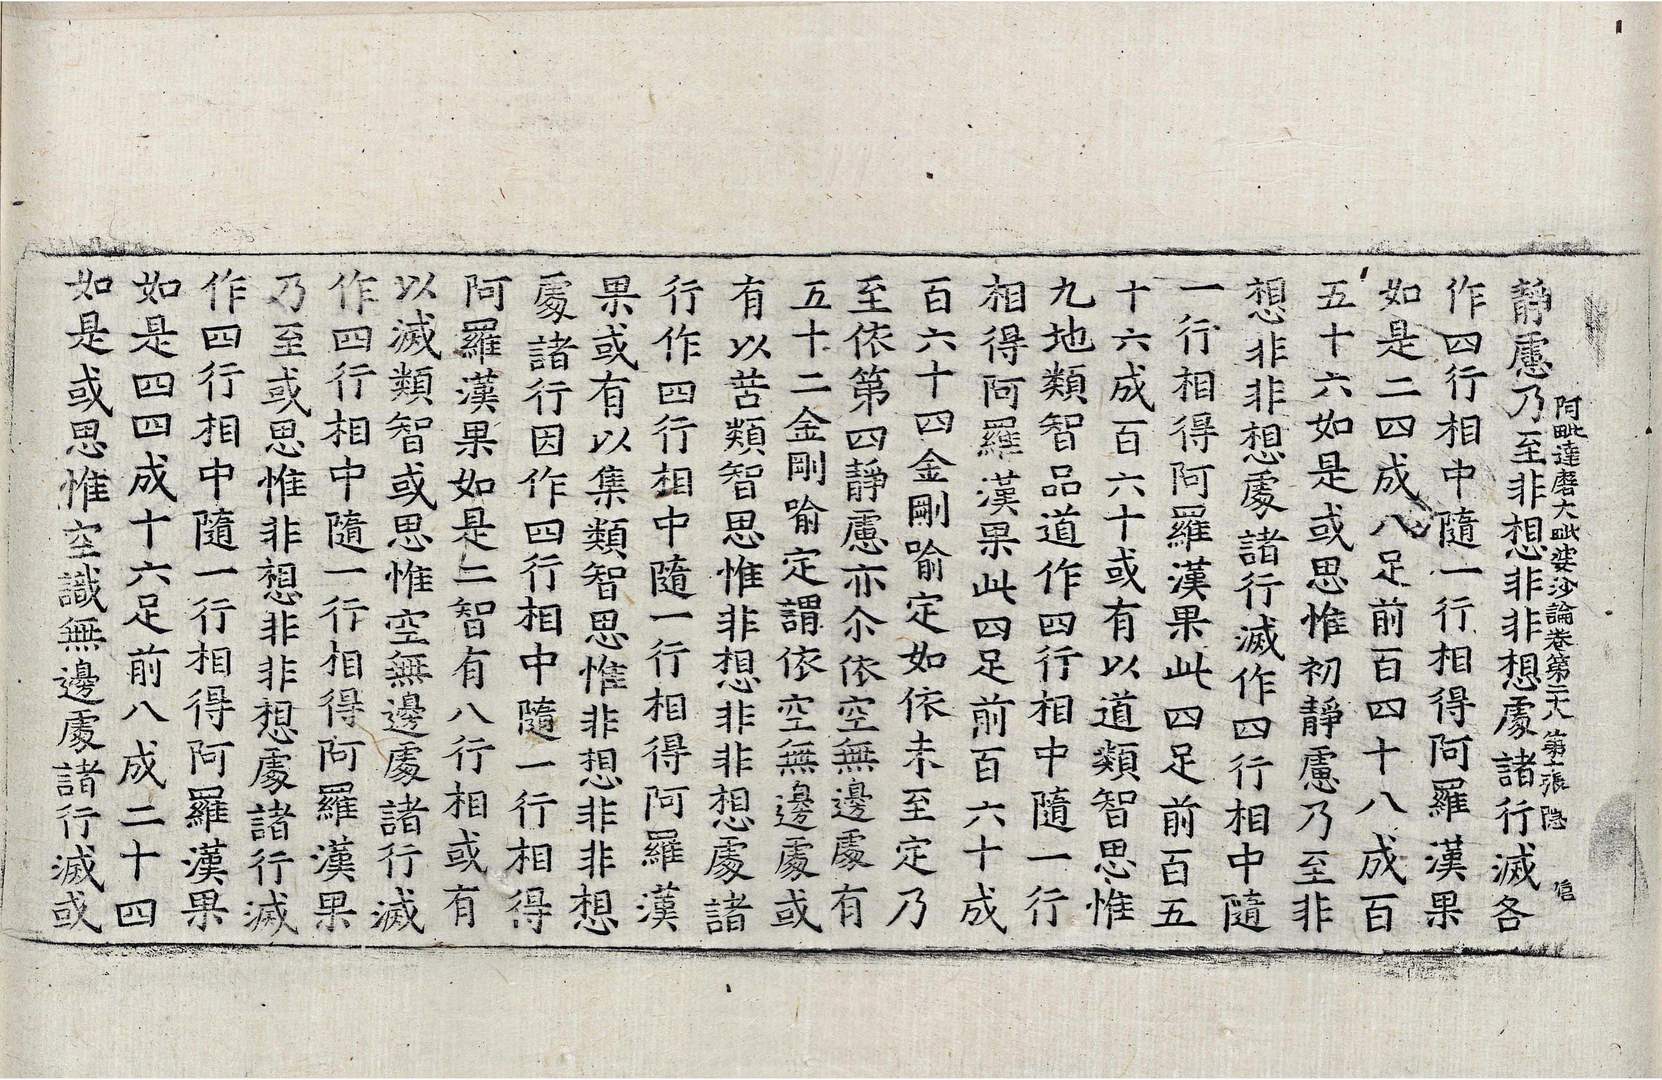 阿毗達磨大毗婆沙論卷第二十八 第十張 隠 信
靜慮乃至非想非非想處諸行滅各
作四行相中隨一行相得阿羅漢果
如是二四成八足前百四十八成百
五十六如是或思惟初靜慮乃至非
想非非想處諸行滅作四行相中隨
一行相得阿羅漢果此四足前百五
十六成百六十或有以道類智思惟
九地類智品道作四行相中隨一行
相得阿羅漢果此四足前百六十成
百六十四金剛喻定如依未至定乃
至依第四靜慮亦尒依空無邊處有
五十二金剛喻定謂依空無邊處或
有以苦類智思惟非想非非想處諸
行作四行相中隨一行相得阿羅漢
果或有以集類智思惟非想非非想
處諸行因作四行相中隨一行相得
阿羅漢果如是二智有八行相或有
以滅類智或思惟空無邊處諸行滅
作四行相中隨一行相得阿羅漢果
乃至或思惟非想非非想處諸行滅
作四行相中隨一行相得阿羅漢果
如是四四成十六足前八成二十四
如是或思惟空識無邊處諸行滅或